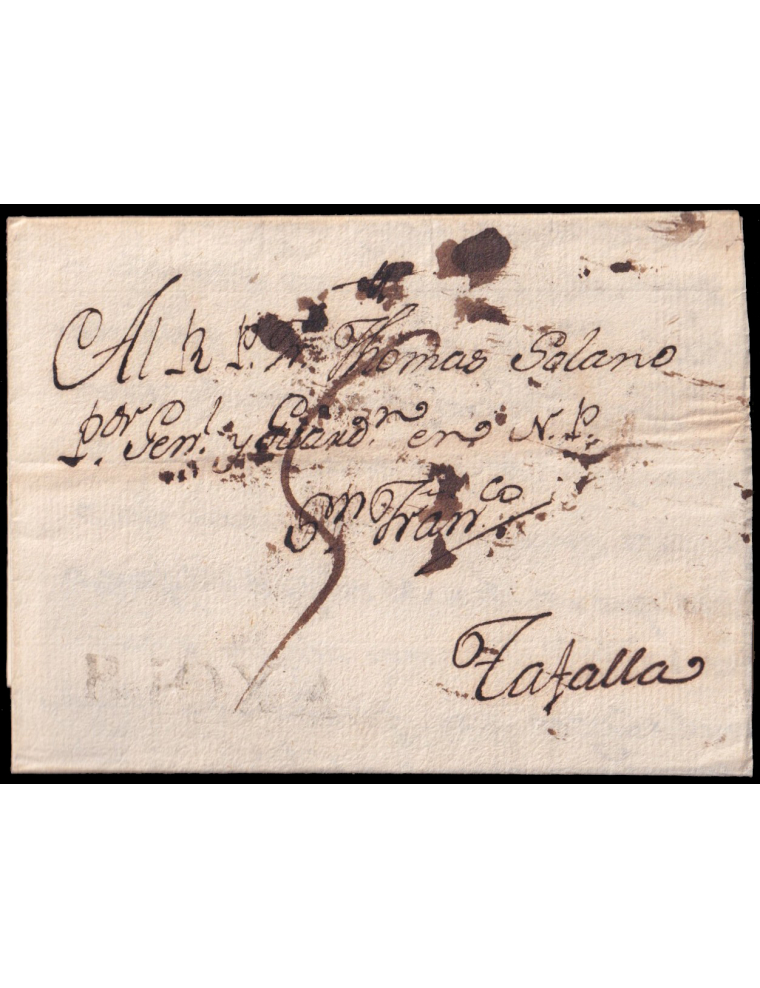 Al R. P. Fr. Thomas Solano
P.or Gen.l y Guard.n en N. P.
S.n Fran.co
Tafalla